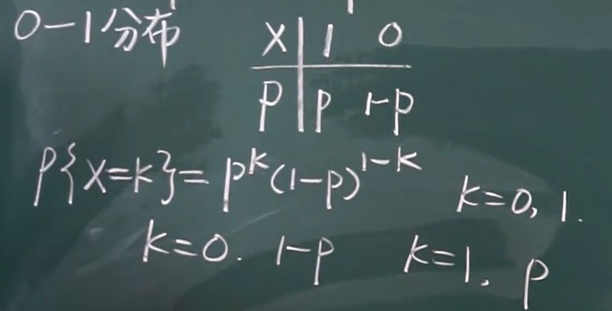 0-1分布
X | 1 0
P | p 1-p
P{X=k}=p^k(1-p)^{1-k} k=0, 1.
k=0. 1-p k=1, p